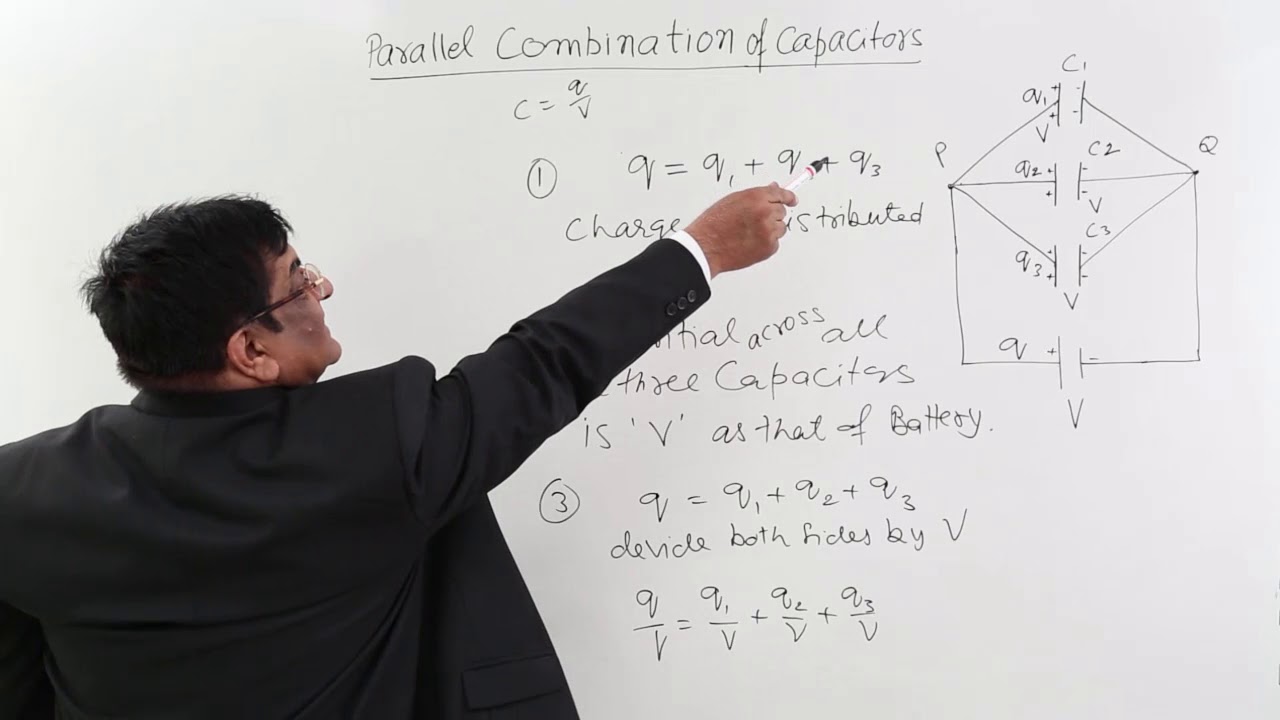 Parallel Combination of Capacitors
C = q/V
① q = q₁ + q + q₃
Charge istributed
ntial across all
three Capacitors
is 'V' as that of Battery.
③ q = q₁ + q₂ + q₃
devide both sides by V
q/V = q₁/V + q₂/V + q₃/V
C₁
q₁ + + - -
V
P
Q
C2
q₂ + + - -
V
C3
q₃ + + - -
V
q + -
V